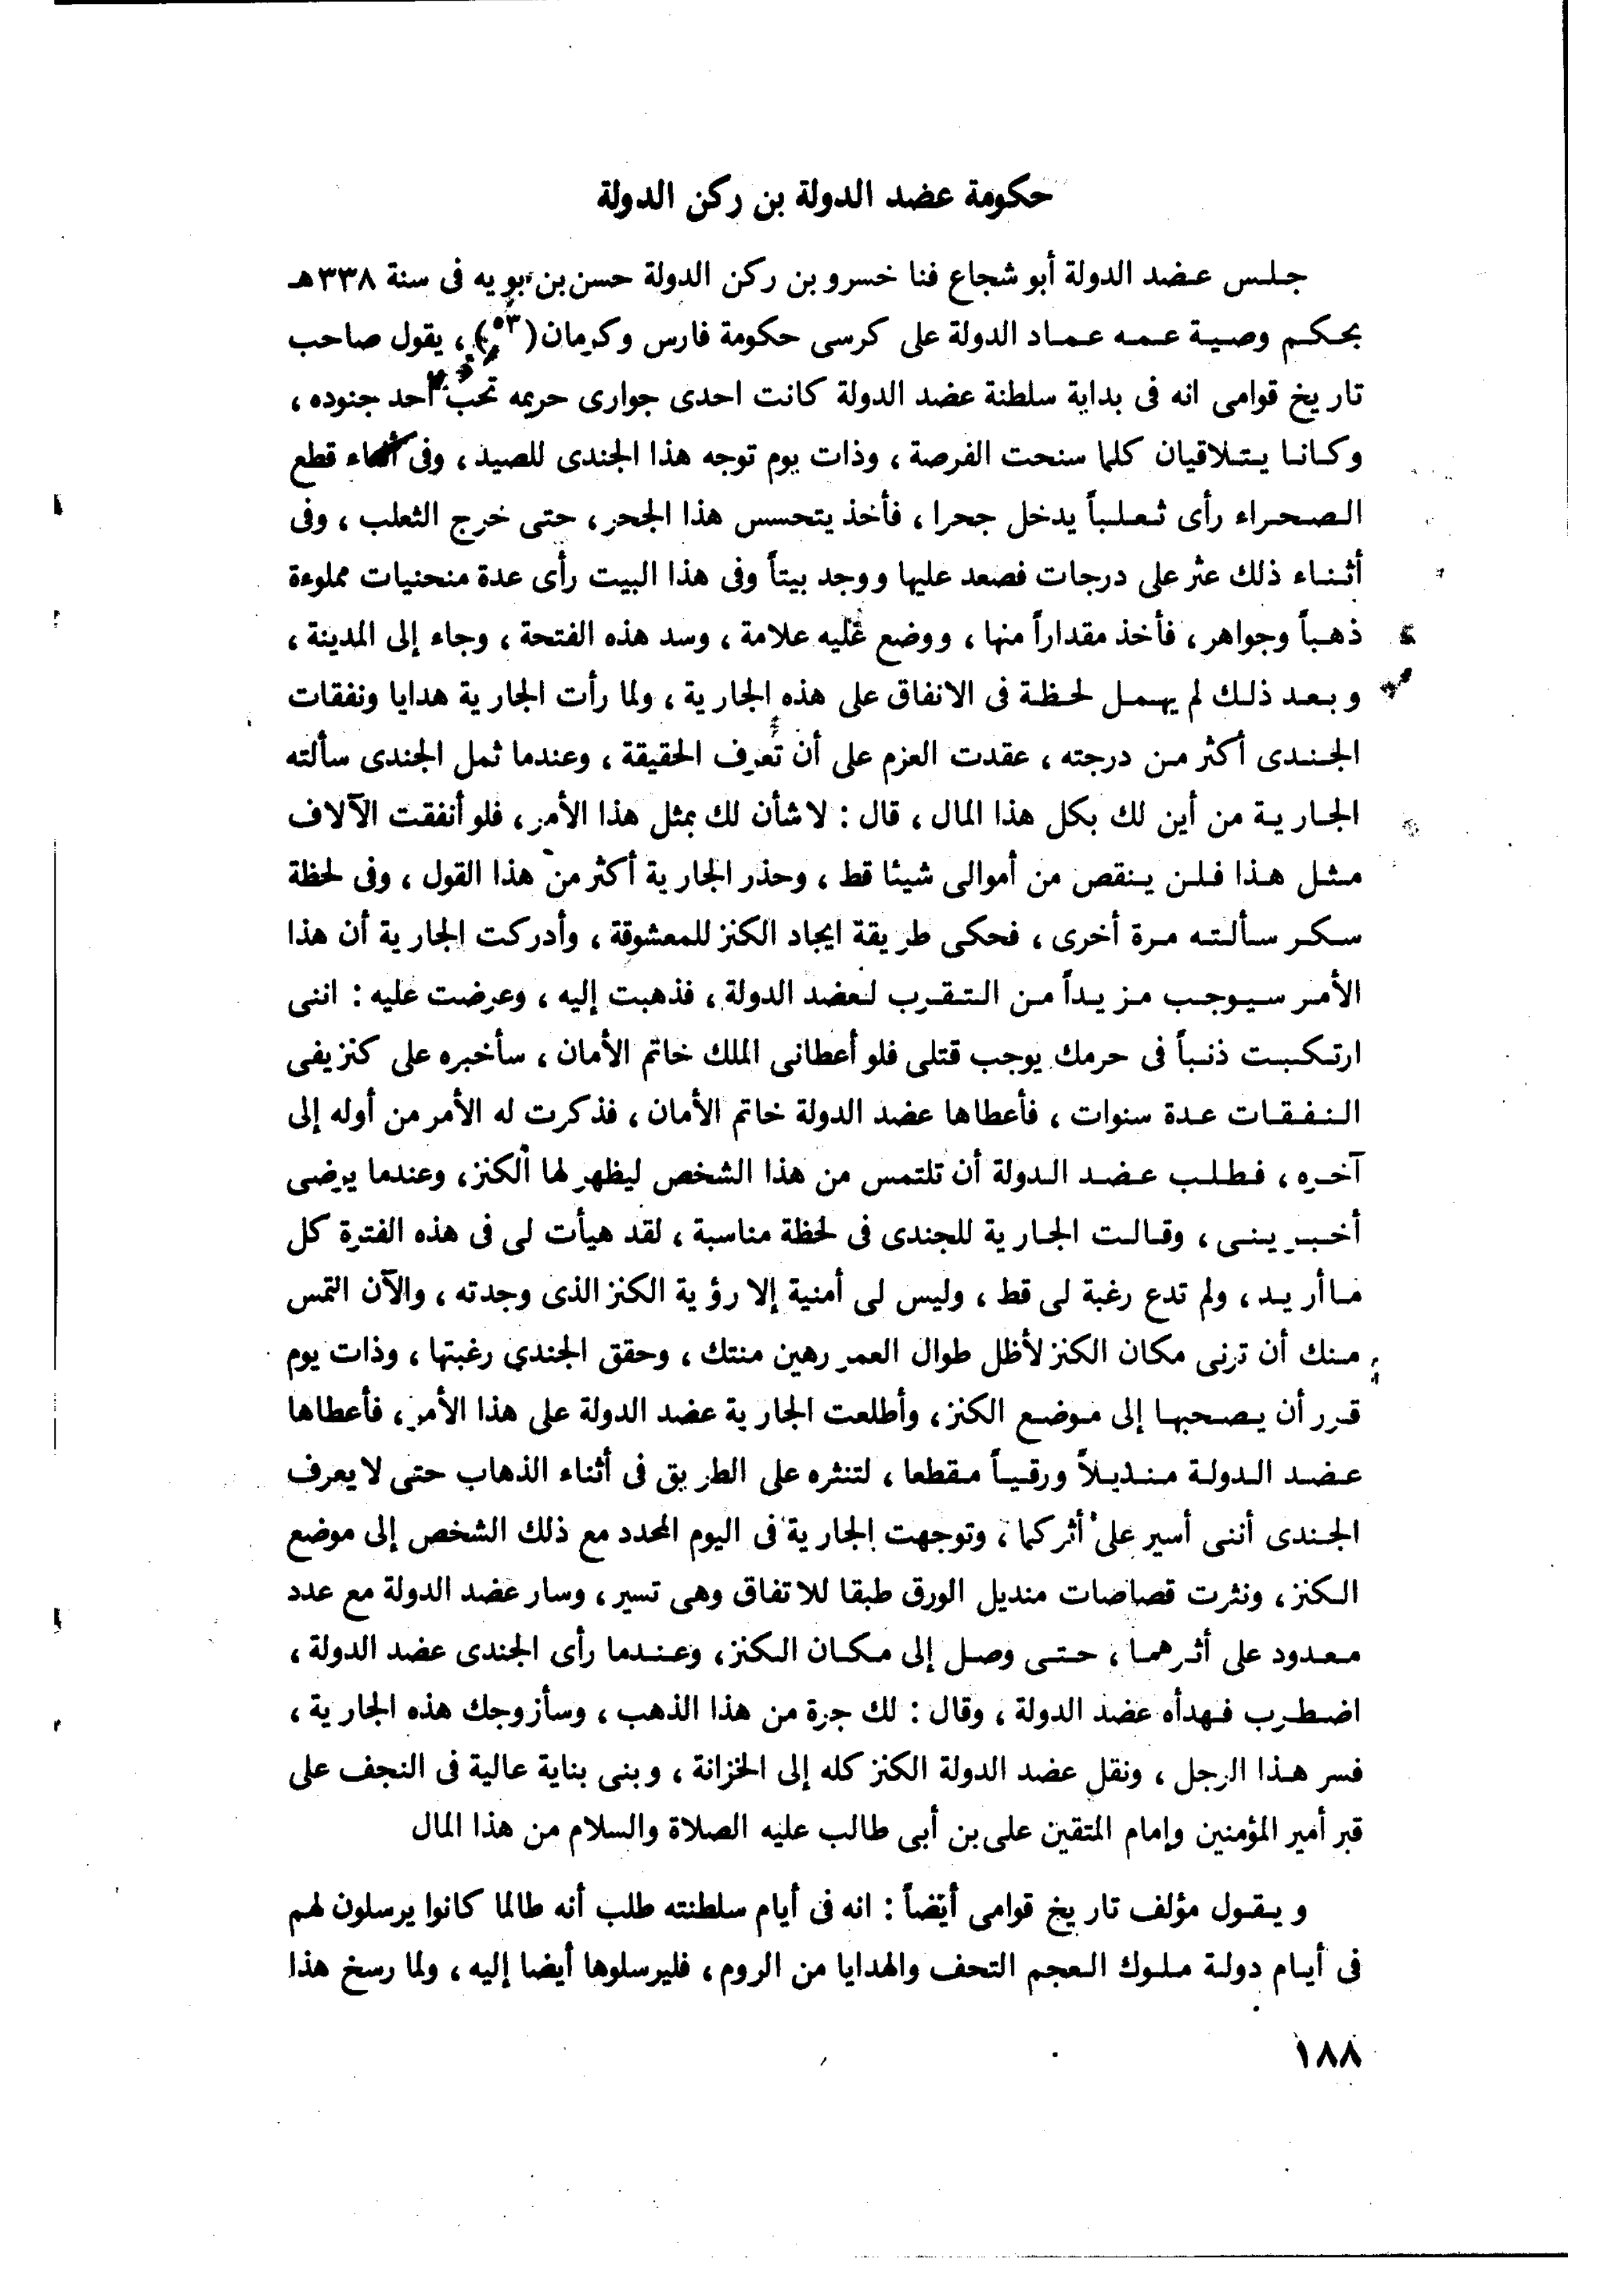 حكومة عضد الدولة بن ركن الدولة
جلس عضد الدولة أبو شجاع فنا خسرو بن ركن الدولة حسن بن بويه فى سنة ٣٣٨هـ
بحكم وصية عمه عماد الدولة على كرسى حكومة فارس وكرمان (٥٣) ، يقول صاحب
تاريخ قوامى انه فى بداية سلطنة عضد الدولة كانت احدى جوارى حريمه تحب أحد جنوده ،
وكانا يتلاقيان كلما سنحت الفرصة ، وذات يوم توجه هذا الجندى للصيد ، وفى أثناء قطع
الصحراء رأى ثعلباً يدخل جحرا ، فأخذ يتحسس هذا الجحر ، حتى خرج الثعلب ، وفى
أثناء ذلك عثر على درجات فصعد عليها ووجد بيتاً وفى هذا البيت رأى عدة منحنيات مملوءة
ذهباً وجواهر ، فأخذ مقداراً منها ، ووضع عليه علامة ، وسد هذه الفتحة ، وجاء إلى المدينة ،
وبعد ذلك لم يهمل لحظة فى الانفاق على هذه الجارية ، ولما رأت الجارية هدايا ونفقات
الجندى أكثر من درجته ، عقدت العزم على أن تعرف الحقيقة ، وعندما ثمل الجندى سألته
الجارية من أين لك بكل هذا المال ، قال : لا شأن لك بمثل هذا الأمر ، فلو أنفقت الآلاف
مثل هذا فلن ينقص من أموالى شيئا قط ، وحذر الجارية أكثر من هذا القول ، وفى لحظة
سكر سألته مرة أخرى ، فحكى طريقة ايجاد الكنز للمعشوقة ، وأدركت الجارية أن هذا
الأمر سيوجب مزيداً من التقرب لعضد الدولة ، فذهبت إليه ، وعرضت عليه : اننى
ارتكبت ذنباً فى حرمك يوجب قتلى فلو أعطانى الملك خاتم الأمان ، سأخبره على كنز يفى
النفقات عدة سنوات ، فأعطاها عضد الدولة خاتم الأمان ، فذكرت له الأمر من أوله إلى
آخره ، فطلب عضد الدولة أن تلتمس من هذا الشخص ليظهر لها الكنز ، وعندما يرضى
أخبرينى ، وقالت الجارية للجندى فى لحظة مناسبة ، لقد هيأت لى فى هذه الفترة كل
ما أريد ، ولم تدع رغبة لى قط ، وليس لى أمنية إلا رؤية الكنز الذى وجدته ، والآن التمس
منك أن ترنى مكان الكنز لأظل طوال العمر رهين منتك ، وحقق الجندي رغبتها ، وذات يوم
قرر أن يصحبها إلى موضع الكنز ، وأطلعت الجارية عضد الدولة على هذا الأمر ، فأعطاها
عضد الدولة منديلاً ورقياً مقطعا ، لتنثره على الطريق فى أثناء الذهاب حتى لا يعرف
الجندى أننى أسير على أثركما ، وتوجهت الجارية فى اليوم المحدد مع ذلك الشخص إلى موضع
الكنز ، ونثرت قصاصات منديل الورق طبقا للاتفاق وهى تسير ، وسار عضد الدولة مع عدد
معدود على أثرهما ، حتى وصل إلى مكان الكنز ، وعندما رأى الجندى عضد الدولة ،
اضطرب فهدأه عضد الدولة ، وقال : لك جرة من هذا الذهب ، وسأزوجك هذه الجارية ،
فسر هذا الرجل ، ونقل عضد الدولة الكنز كله إلى الخزانة ، وبنى بناية عالية فى النجف على
قبر أمير المؤمنين وإمام المتقين على بن أبى طالب عليه الصلاة والسلام من هذا المال
ويقول مؤلف تاريخ قوامى أيضاً : انه فى أيام سلطنته طلب أنه طالما كانوا يرسلون لهم
فى أيام دولة ملوك العجم التحف والهدايا من الروم ، فليرسلوها أيضا إليه ، ولما رسخ هذا
١٨٨